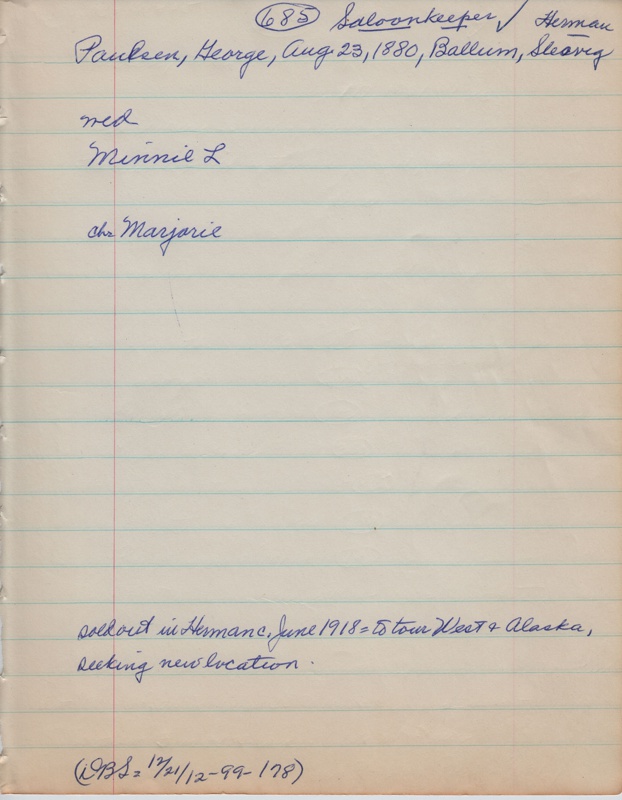 685 Saloonkeeper ✓ Herman
Paulsen, George, Aug 23, 1880, Ballum, Slesvig
med
Minnie L
chr Marjorie
sold out in Herman c, June 1918 = to tour West & Alaska,
seeking new location.
(DBS = 12/21/12-99-178)